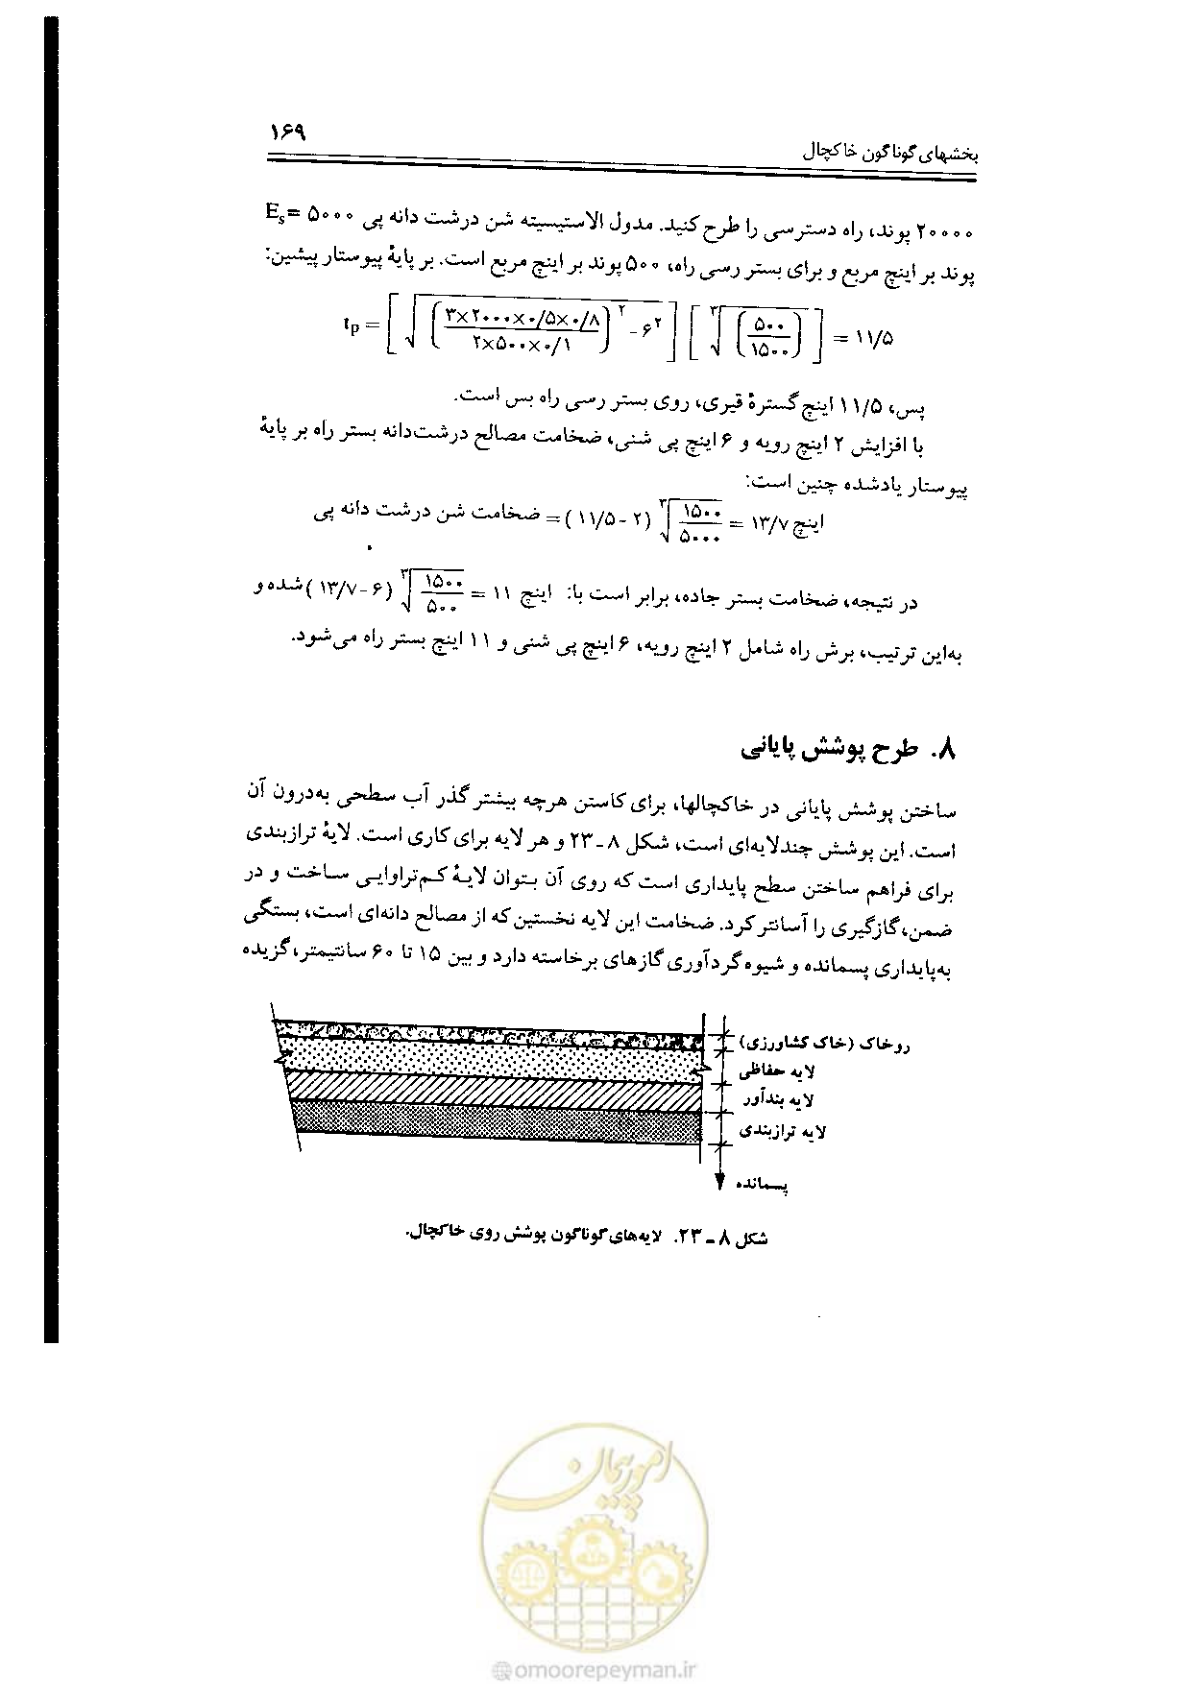 ۱۶۹
بخشهای گوناگون خاکچال
۲۰۰۰۰ پوند، راه دسترسی را طرح کنید. مدول الاستیسیته شن درشت دانه پی Es = ۵۰۰۰
پوند بر اینچ مربع و برای بستر رسی راه، ۵۰۰ پوند بر اینچ مربع است. بر پایهٔ پیوستار پیشین:
tp = [ √ (۳×۲۰۰۰×۰/۵×۰/۸ / ۲×۵۰۰×۰/۱)^۲ - ۶^۲ ] [ ۳√ (۵۰۰ / ۱۵۰۰) ] = ۱۱/۵
پس، ۱۱/۵ اینچ گسترهٔ قیری، روی بستر رسی راه بس است.
با افزایش ۲ اینچ رویه و ۶ اینچ پی شنی، ضخامت مصالح درشت‌دانه بستر راه بر پایهٔ
پیوستار یادشده چنین است:
ضخامت شن درشت دانه پی = (۱۱/۵ - ۲) ۳√ ۱۵۰۰ / ۵۰۰۰ = ۱۳/۷ اینچ
در نتیجه، ضخامت بستر جاده، برابر است با: اینچ ۱۱ = ۳√ ۱۵۰۰ / ۵۰۰ (۱۳/۷ - ۶) شده و
به‌این ترتیب، برش راه شامل ۲ اینچ رویه، ۶ اینچ پی شنی و ۱۱ اینچ بستر راه می‌شود.
۸. طرح پوشش پایانی
ساختن پوشش پایانی در خاکچالها، برای کاستن هرچه بیشتر گذر آب سطحی به‌درون آن
است. این پوشش چندلایه‌ای است، شکل ۸ ـ ۲۳ و هر لایه برای کاری است. لایهٔ ترازبندی
برای فراهم ساختن سطح پایداری است که روی آن بتوان لایهٔ کم‌تراوایی ساخت و در
ضمن، گازگیری را آسانتر کرد. ضخامت این لایه نخستین که از مصالح دانه‌ای است، بستگی
به‌پایداری پسمانده و شیوه گردآوری گازهای برخاسته دارد و بین ۱۵ تا ۶۰ سانتیمتر، گزیده
روخاک (خاک کشاورزی)
لایه حفاظی
لایه بندآور
لایه ترازبندی
پسمانده
شکل ۸ ـ ۲۳. لایه‌های گوناگون پوشش روی خاکچال.
امور پیمان
@omoorepeyman.ir